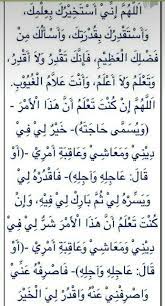 اللَّهُمَّ إِنِّي أَسْتَخِيْرُكَ بِعِلْمِكَ،
وَأَسْتَقْدِرُكَ بِقُدْرَتِكَ، وَأَسْأَلُكَ مِنْ
فَضْلِكَ الْعَظِيْمِ، فَإِنَّكَ تَقْدِرُ وَلَا أَقْدِرُ،
وَتَعْلَمُ وَلَا أَعْلَمُ، وَأَنْتَ عَلَّامُ الْغُيُوْبِ
اللَّهُمَّ إِنْ كُنْتَ تَعْلَمُ أَنَّ هَذَا الْأَمْرَ -
(وَيُسَمَّى حَاجَتَهُ)- خَيْرٌ لِيْ فِيْ
دِيْنِيْ وَمَعَاشِيْ وَعَاقِبَةِ أَمْرِيْ -(أَوْ
قَالَ: عَاجِلِهِ وَآجِلِهِ)- فَاقْدُرْهُ لِيْ
وَيَسِّرْهُ لِيْ ثُمَّ بَارِكْ لِيْ فِيْهِ، وَإِنْ
كُنْتَ تَعْلَمُ أَنَّ هَذَا الْأَمْرَ شَرٌّ لِيْ فِيْ
دِيْنِيْ وَمَعَاشِيْ وَعَاقِبَةِ أَمْرِيْ -(أَوْ
قَالَ: عَاجِلِهِ وَآجِلِهِ)- فَاصْرِفْهُ عَنِّيْ
وَاصْرِفْنِيْ عَنْهُ وَاقْدُرْ لِيَ الْخَيْرَ